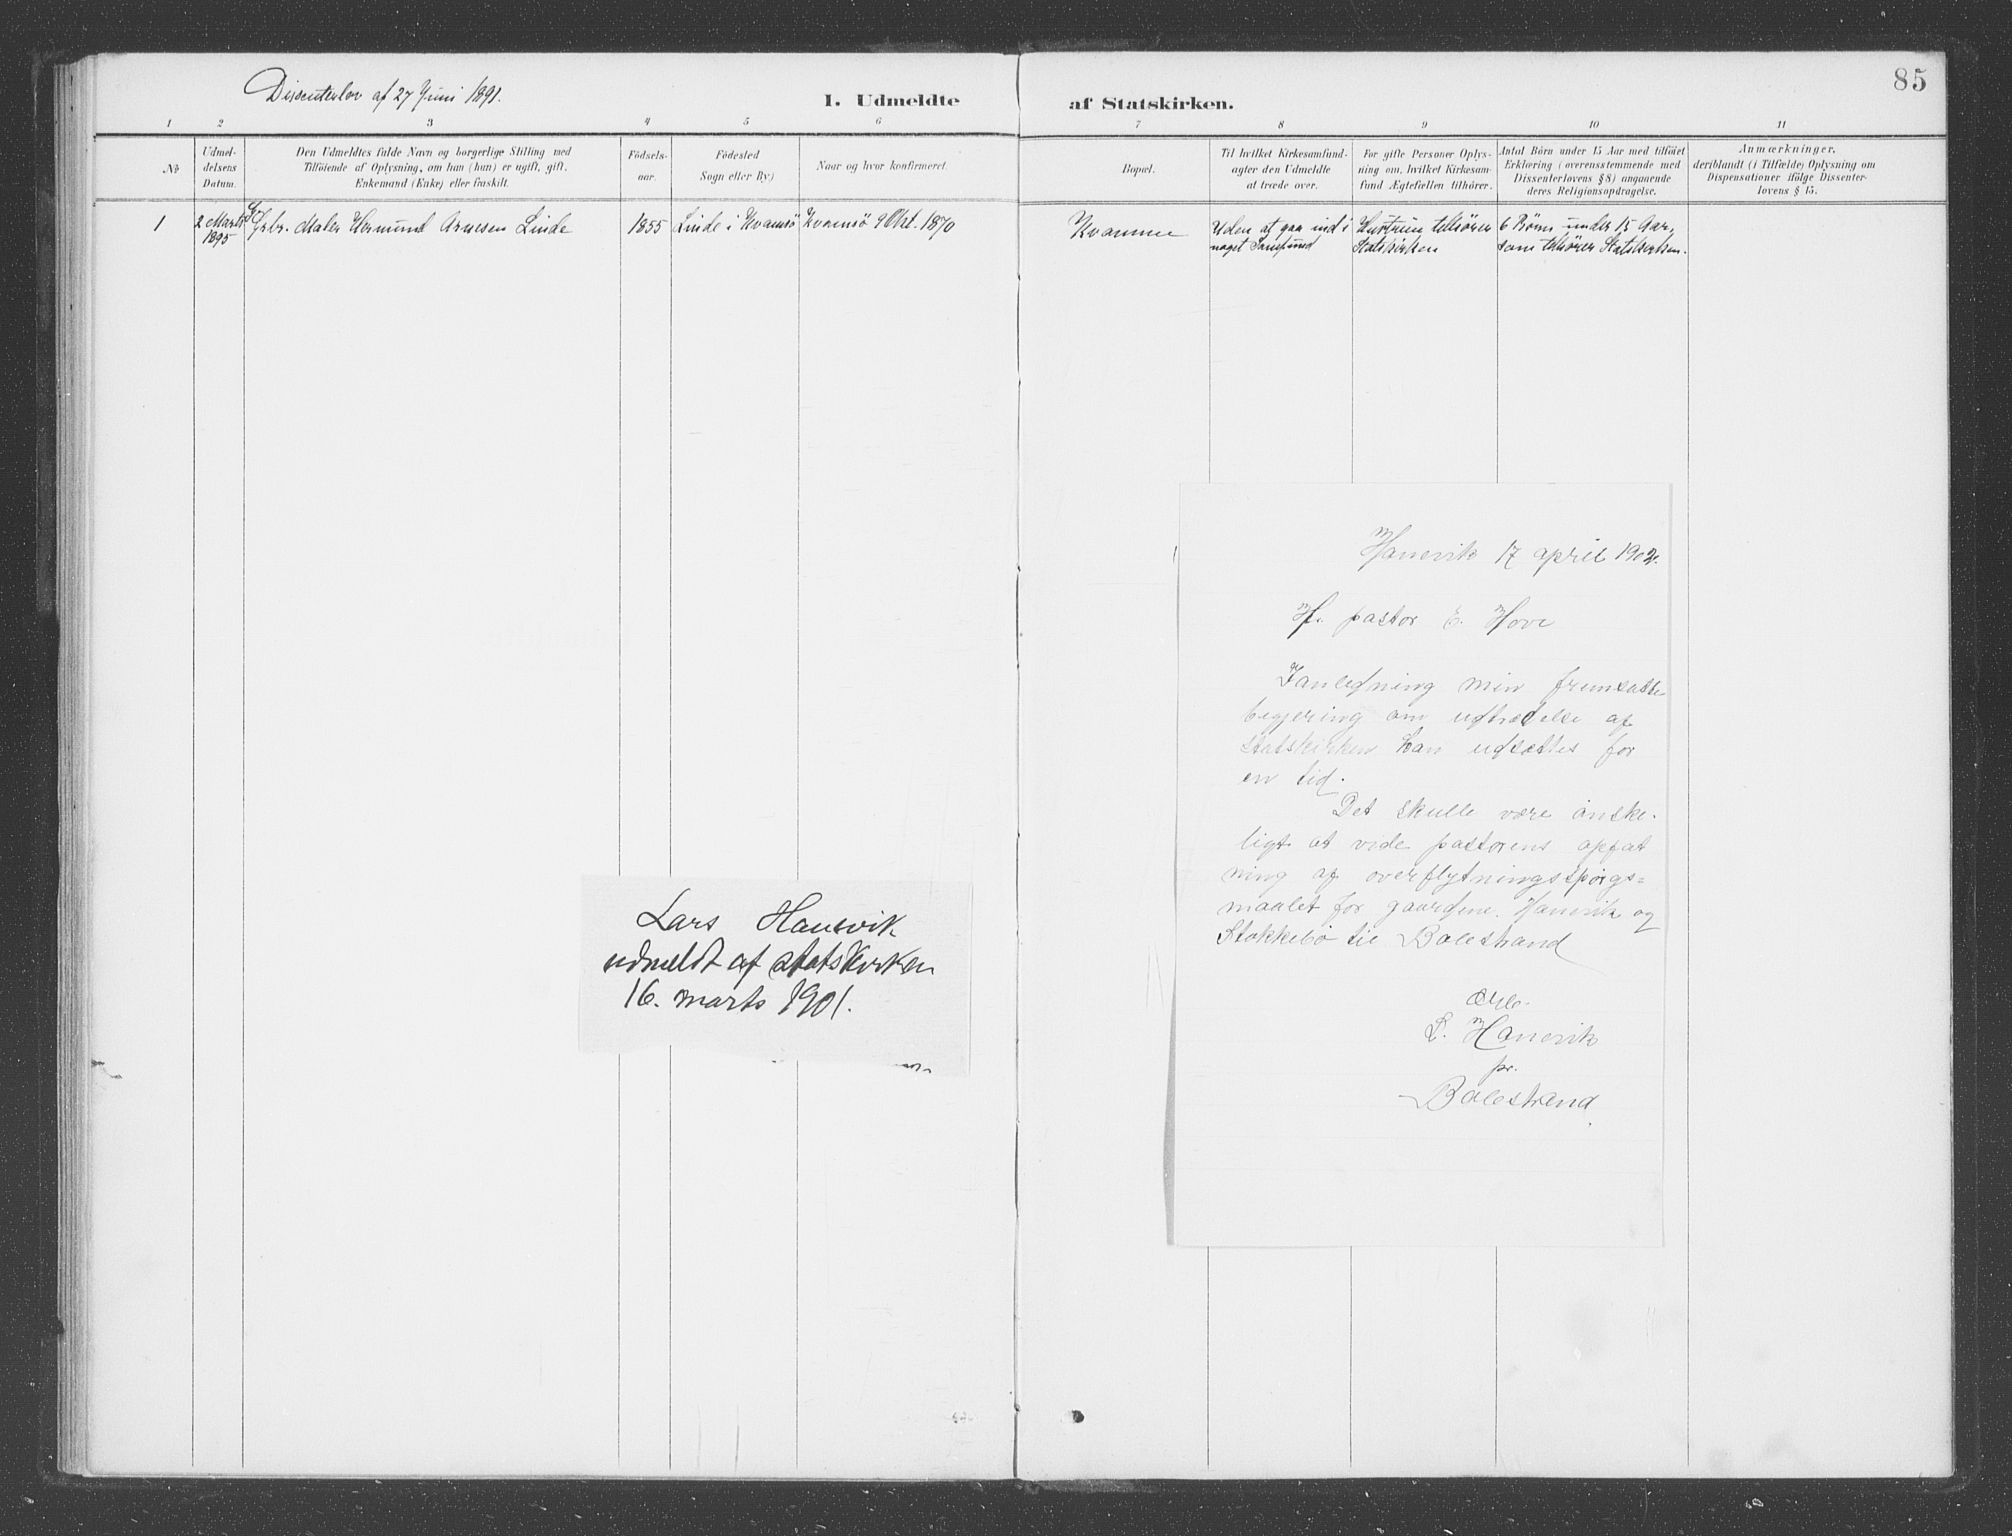 85
Dissenterlov af 27 Juni 1891.
I. Udmeldte af Statskirken.
1 2 3 4 5 6 7 8 9 10 11
№
Udmel-
delsens
Datum.
Den Udmeldtes fulde Navn og borgerlige Stilling med
Tilföiende af Oplysning, om han (hun) er ugift, gift,
Enkemand (Enke) eller fraskilt.
Födsels-
aar.
Födested
Sogn eller By)
Naar og hvor konfirmeret.
Bopæl.
Til hvilket Kirkesamfund
agter den Udmeldte
at træde over.
For gifte Personer Oplys-
ning om, hvilket Kirkesam-
fund Ægtefællen tilhörer.
Antal Börn under 15 Aar med tilföiet
Erklæring (overensstemmende med
Dissenterlovens § 8) angaaende
deres Religionsopdragelse.
Anmærkninger,
deriblandt (i Tilfælde) Oplysning om
Dispensationer ifölge Dissenter-
lovens § 15.
1
2 Marts
1895
Gbr. Maler Hermund Arnesen Linde
1855
Linde i Kvamsö
Kvamsö 9 Okt. 1870
Kvamme
Uden at gaa ind i
noget Samfund
Hustruen tilhörer
Statskirken
6 Börn under 15 Aar,
som tilhörer Statskirken.
Lars Hanevik
udmeldt af statskirken
16. marts 1901.
Hanevik 17 april 1902.
Hr. pastor E. Hove
Ianledning min fremsatte
begjering om udtrædelse af
statskirken kan udsættes for
en tid.
Det skulle være önske-
ligt at vide pastorens opfat
ning af overflytningsspörgs=
maalet for gaardene Hanevik og
Stokkebö til Balestrand
Ærb.
L. Hanevik
pr.
Balestrand